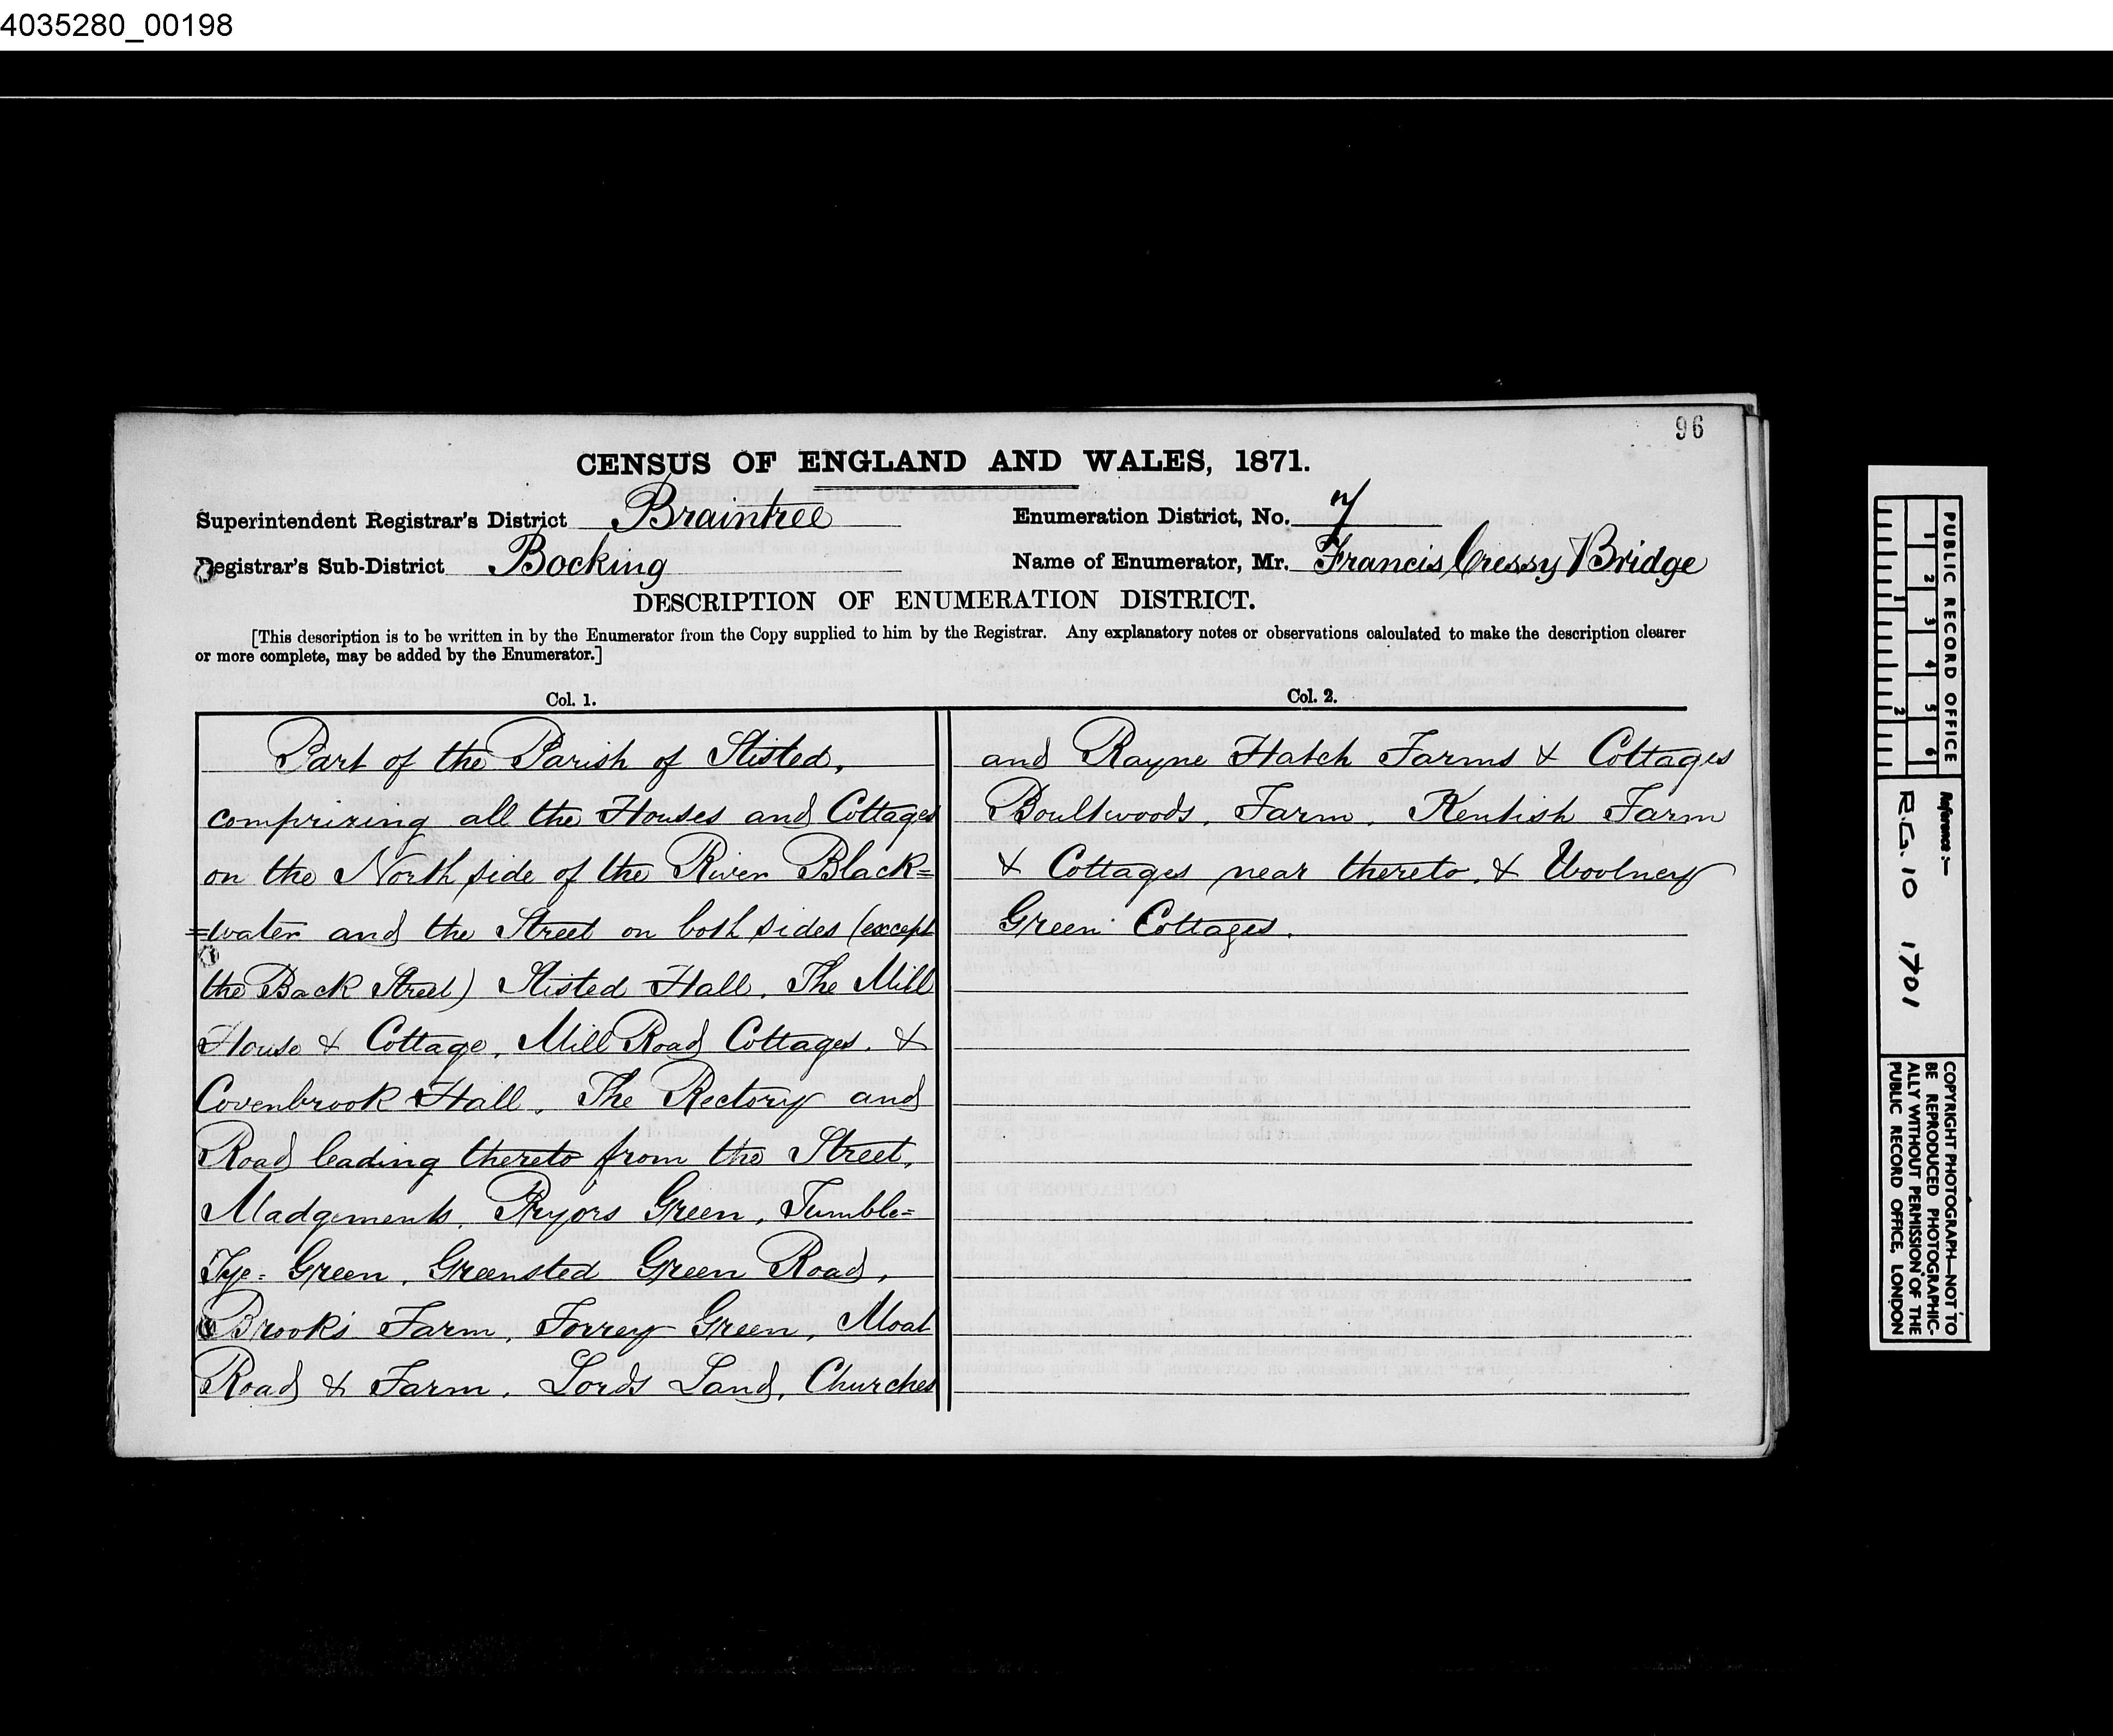 4035280_00198
96
CENSUS OF ENGLAND AND WALES, 1871.
Superintendent Registrar's District Braintree
Enumeration District, No. 7
Registrar's Sub-District Bocking
Name of Enumerator, Mr. Francis Cressy Bridge
DESCRIPTION OF ENUMERATION DISTRICT.
[This description is to be written in by the Enumerator from the Copy supplied to him by the Registrar. Any explanatory notes or observations calculated to make the description clearer
or more complete, may be added by the Enumerator.]
Col. 1.
Part of the Parish of Stisted,
comprizing all the Houses and Cottages
on the North side of the River Black=
=water and the Street on both sides (except
the Back Street) Stisted Hall. The Mill
House & Cottage, Mill Road Cottages. &
Covenbrook Hall. The Rectory and
Road leading thereto from the Street,
Madgements, Pryors Green, Tumble=
Tye= Green, Greensted Green Road,
Brook's Farm, Forrey Green, Moat
Road & Farm. Lords Land, Churches
Col. 2.
and Rayne Hatch Farms & Cottages
Boultwoods, Farm, Kentish Farm
& Cottages near thereto, & Woolnery
Green Cottages.
PUBLIC RECORD OFFICE
1 2 3 4 5 6
1 2
Reference :—
R.G. 10 1701
COPYRIGHT PHOTOGRAPH—NOT TO
BE REPRODUCED PHOTOGRAPHIC-
ALLY WITHOUT PERMISSION OF THE
PUBLIC RECORD OFFICE, LONDON